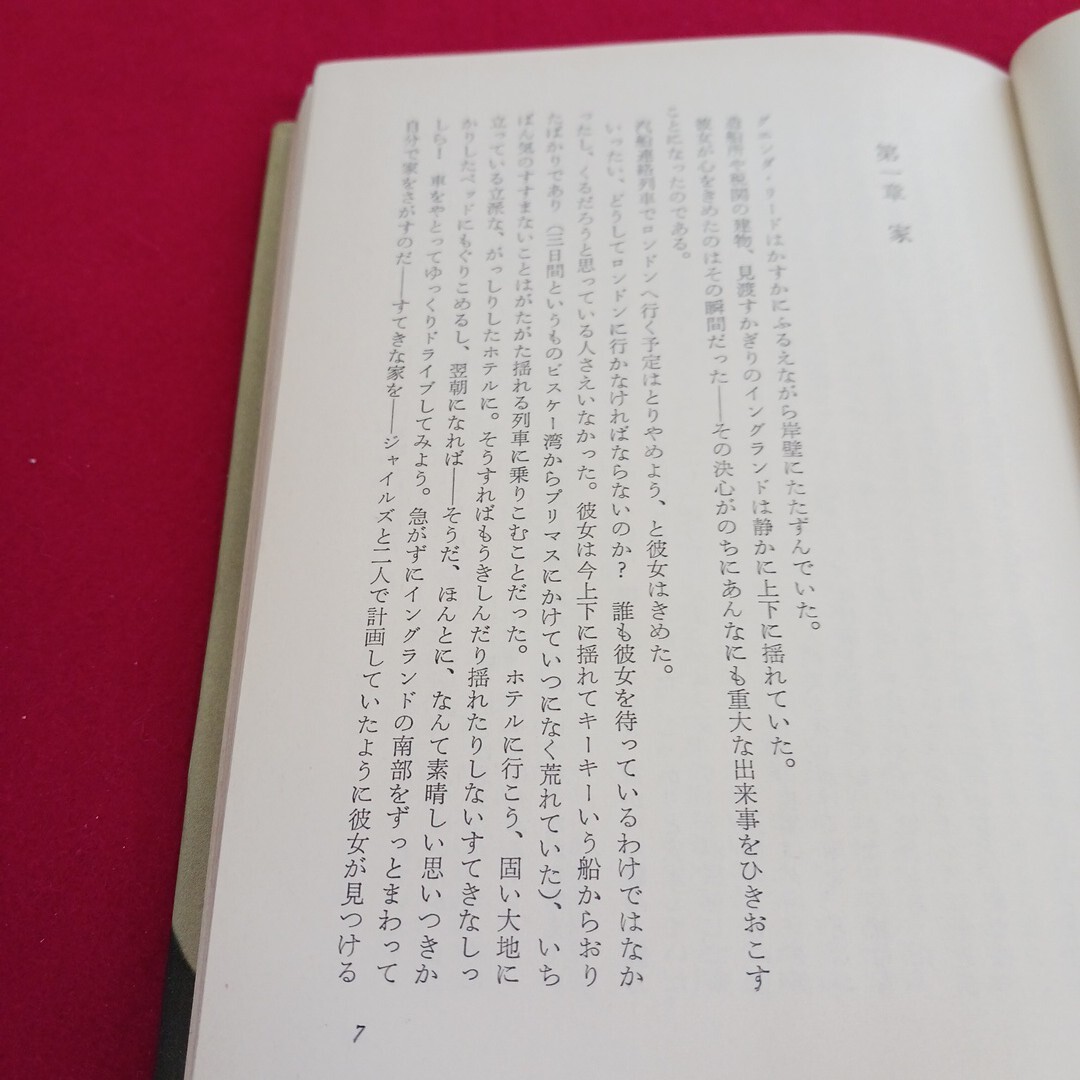 第一章 家
グエンダ・リードはかすかにふるえながら岸壁にたたずんでいた。
造船所や税関の建物、見渡すかぎりのイングランドは静かに上下に揺れていた。
彼女が心をきめたのはその瞬間だった――その決心がのちにあんなにも重大な出来事をひきおこす
ことになったのである。
汽船連絡列車でロンドンへ行く予定はとりやめよう、と彼女はきめた。
いったい、どうしてロンドンに行かなければならないのか？ 誰も彼女を待っているわけではなか
ったし、くるだろうと思っている人さえいなかった。彼女は今上下に揺れてキーキーいう船からおり
たばかりであり（三日間というものビスケー湾からプリマスにかけていつになく荒れていた）、いち
ばん気のすすまないことはがたがた揺れる列車に乗りこむことだった。ホテルに行こう、固い大地に
立っている立派な、がっしりしたホテルに。そうすればもうきしんだり揺れたりしないすてきなしっ
かりしたベッドにもぐりこめるし、翌朝になれば――そうだ、ほんとに、なんて素晴しい思いつきか
しら！ 車をやとってゆっくりドライブしてみよう。急がずにイングランドの南部をずっとまわって
自分で家をさがすのだ――すてきな家を――ジャイルズと二人で計画していたように彼女が見つける
7